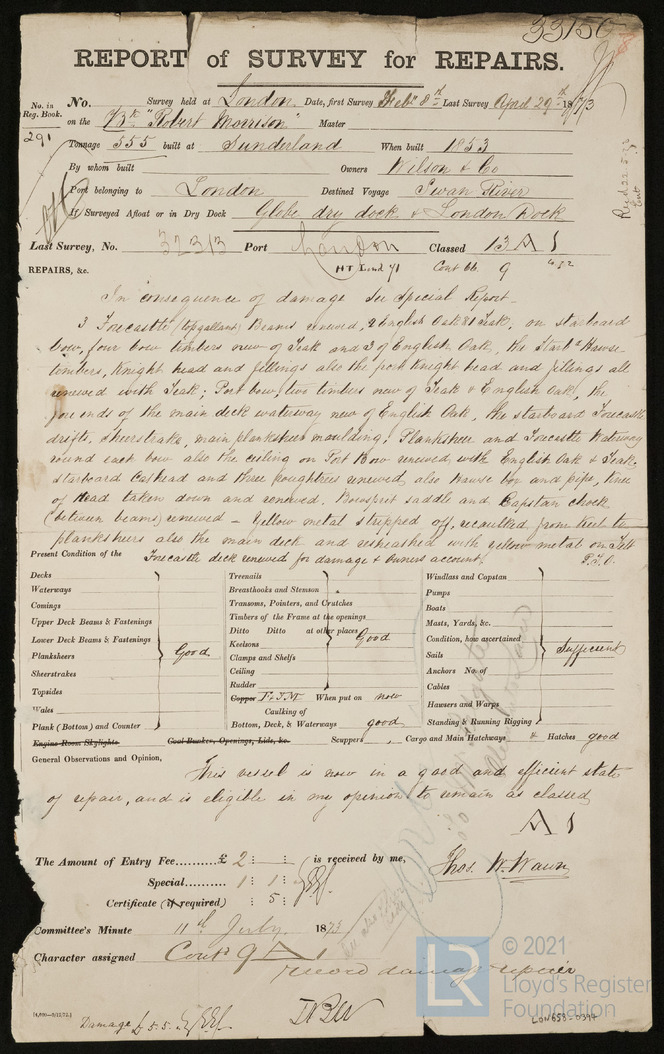 33150
REPORT of SURVEY for REPAIRS.
No. in Reg. Book.
291
No. Survey held at London Date, first Survey Feby 8th Last Survey April 29th 1873
on the Bk "Robert Morrison" Master
Tonnage 555 built at Sunderland When built 1853
By whom built Owners Wilson & Co
Port belonging to London Destined Voyage Swan River
If Surveyed Afloat or in Dry Dock Globe dry dock & London Dock
Last Survey, No. 32313 Port London Classed 13 A 1
HT Lond 71 Cont 66 9
REPAIRS, &c.
In consequence of damage See Special Report
3 Forecastle (topgallant) Beams renewed, 2 English Oak & 1 Teak, on starboard
bow, four bow timbers new of Teak and 3 of English Oak, the Starbd Hawse
timbers, Knight head and fillings also the port Knight head and filings all
renewed with Teak; Port bow, two timbers new of Teak & English Oak, the
fore ends of the main deck waterway new of English Oak, the starboard Forecastle
drifts, sheerstrake, main planksheer moulding, Planksheer and Forecastle Waterway
round each bow also the ceiling on Port Bow renewed with English Oak & Teak,
starboard Cathead and three roughtrees renewed, also hawse box and pipe, Knee
of Head taken down and renewed, Bowsprit saddle and Capstan chock
(between beams) renewed - Yellow metal stripped off, recaulked from keel to
planksheers also the main deck and resheathed with yellow metal on Felt
Forecastle deck renewed for damage & Owners account.
P.T.O.
Present Condition of the
Decks
Waterways
Comings
Upper Deck Beams & Fastenings
Lower Deck Beams & Fastenings
Planksheers
Good
Sheerstrakes
Topsides
Wales
Plank (Bottom) and Counter
Treenails
Breasthooks and Stemson
Transoms, Pointers, and Crutches
Timbers of the Frame at the openings
Ditto Ditto at other places
Good
Keelsons
Clamps and Shelfs
Ceiling
Rudder
Copper F & YM When put on now
Caulking of
Bottom, Deck, & Waterways good
Windlass and Capstan
Pumps
Boats
Masts, Yards, &c.
Condition, how ascertained
Sufficient
Sails
Anchors No. of
Cables
Hawsers and Warps
Standing & Running Rigging
Engine Room Skylights Coal Bunker, Openings, Lids, &c. Scuppers, Cargo and Main Hatchways & Hatches good
General Observations and Opinion,
This vessel is now in a good and efficient state
of repair, and is eligible in my opinion to remain as classed
A 1
The Amount of Entry Fee.......... £ 2 : : is received by me,
Thos. W. Wawn
Special.......... 1 : 1 :
Certificate (if required) : 5 :
Committee's Minute 11th July 1873
Character assigned Contd 9 A 1
record damage repair
Damage £5.5.
© 2021
LR
Lloyd's Register
Foundation
LON658-0394